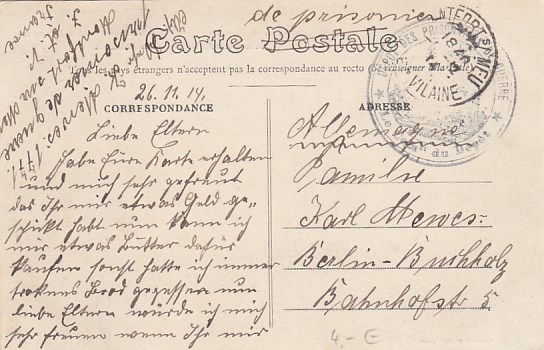 de prisonnier
Carte Postale
Tous les pays étrangers n'acceptent pas la correspondance au recto (Se renseigner à la Poste)
CORRESPONDANCE
ADRESSE
26.11.14.
Liebe Eltern
Habe Eure Karte erhalten
und mich sehr gefreut
das Ihr mir etwas Geld ge-
schickt habt nun kann ich
mir etwas Butter dafür
kaufen sonst hatte ich immer
trokens Brod gegessen nun
liebe Eltern würde ich mich
sehr freuen wenn Ihr mir
Allemagne
Familie
Karl Mewes.
Berlin-Buchholz
Bahnhofstr 5
4,- €
Mewes. 177
prisonnier de guerre
France
VILAINE
DES PRIS
GUERRE